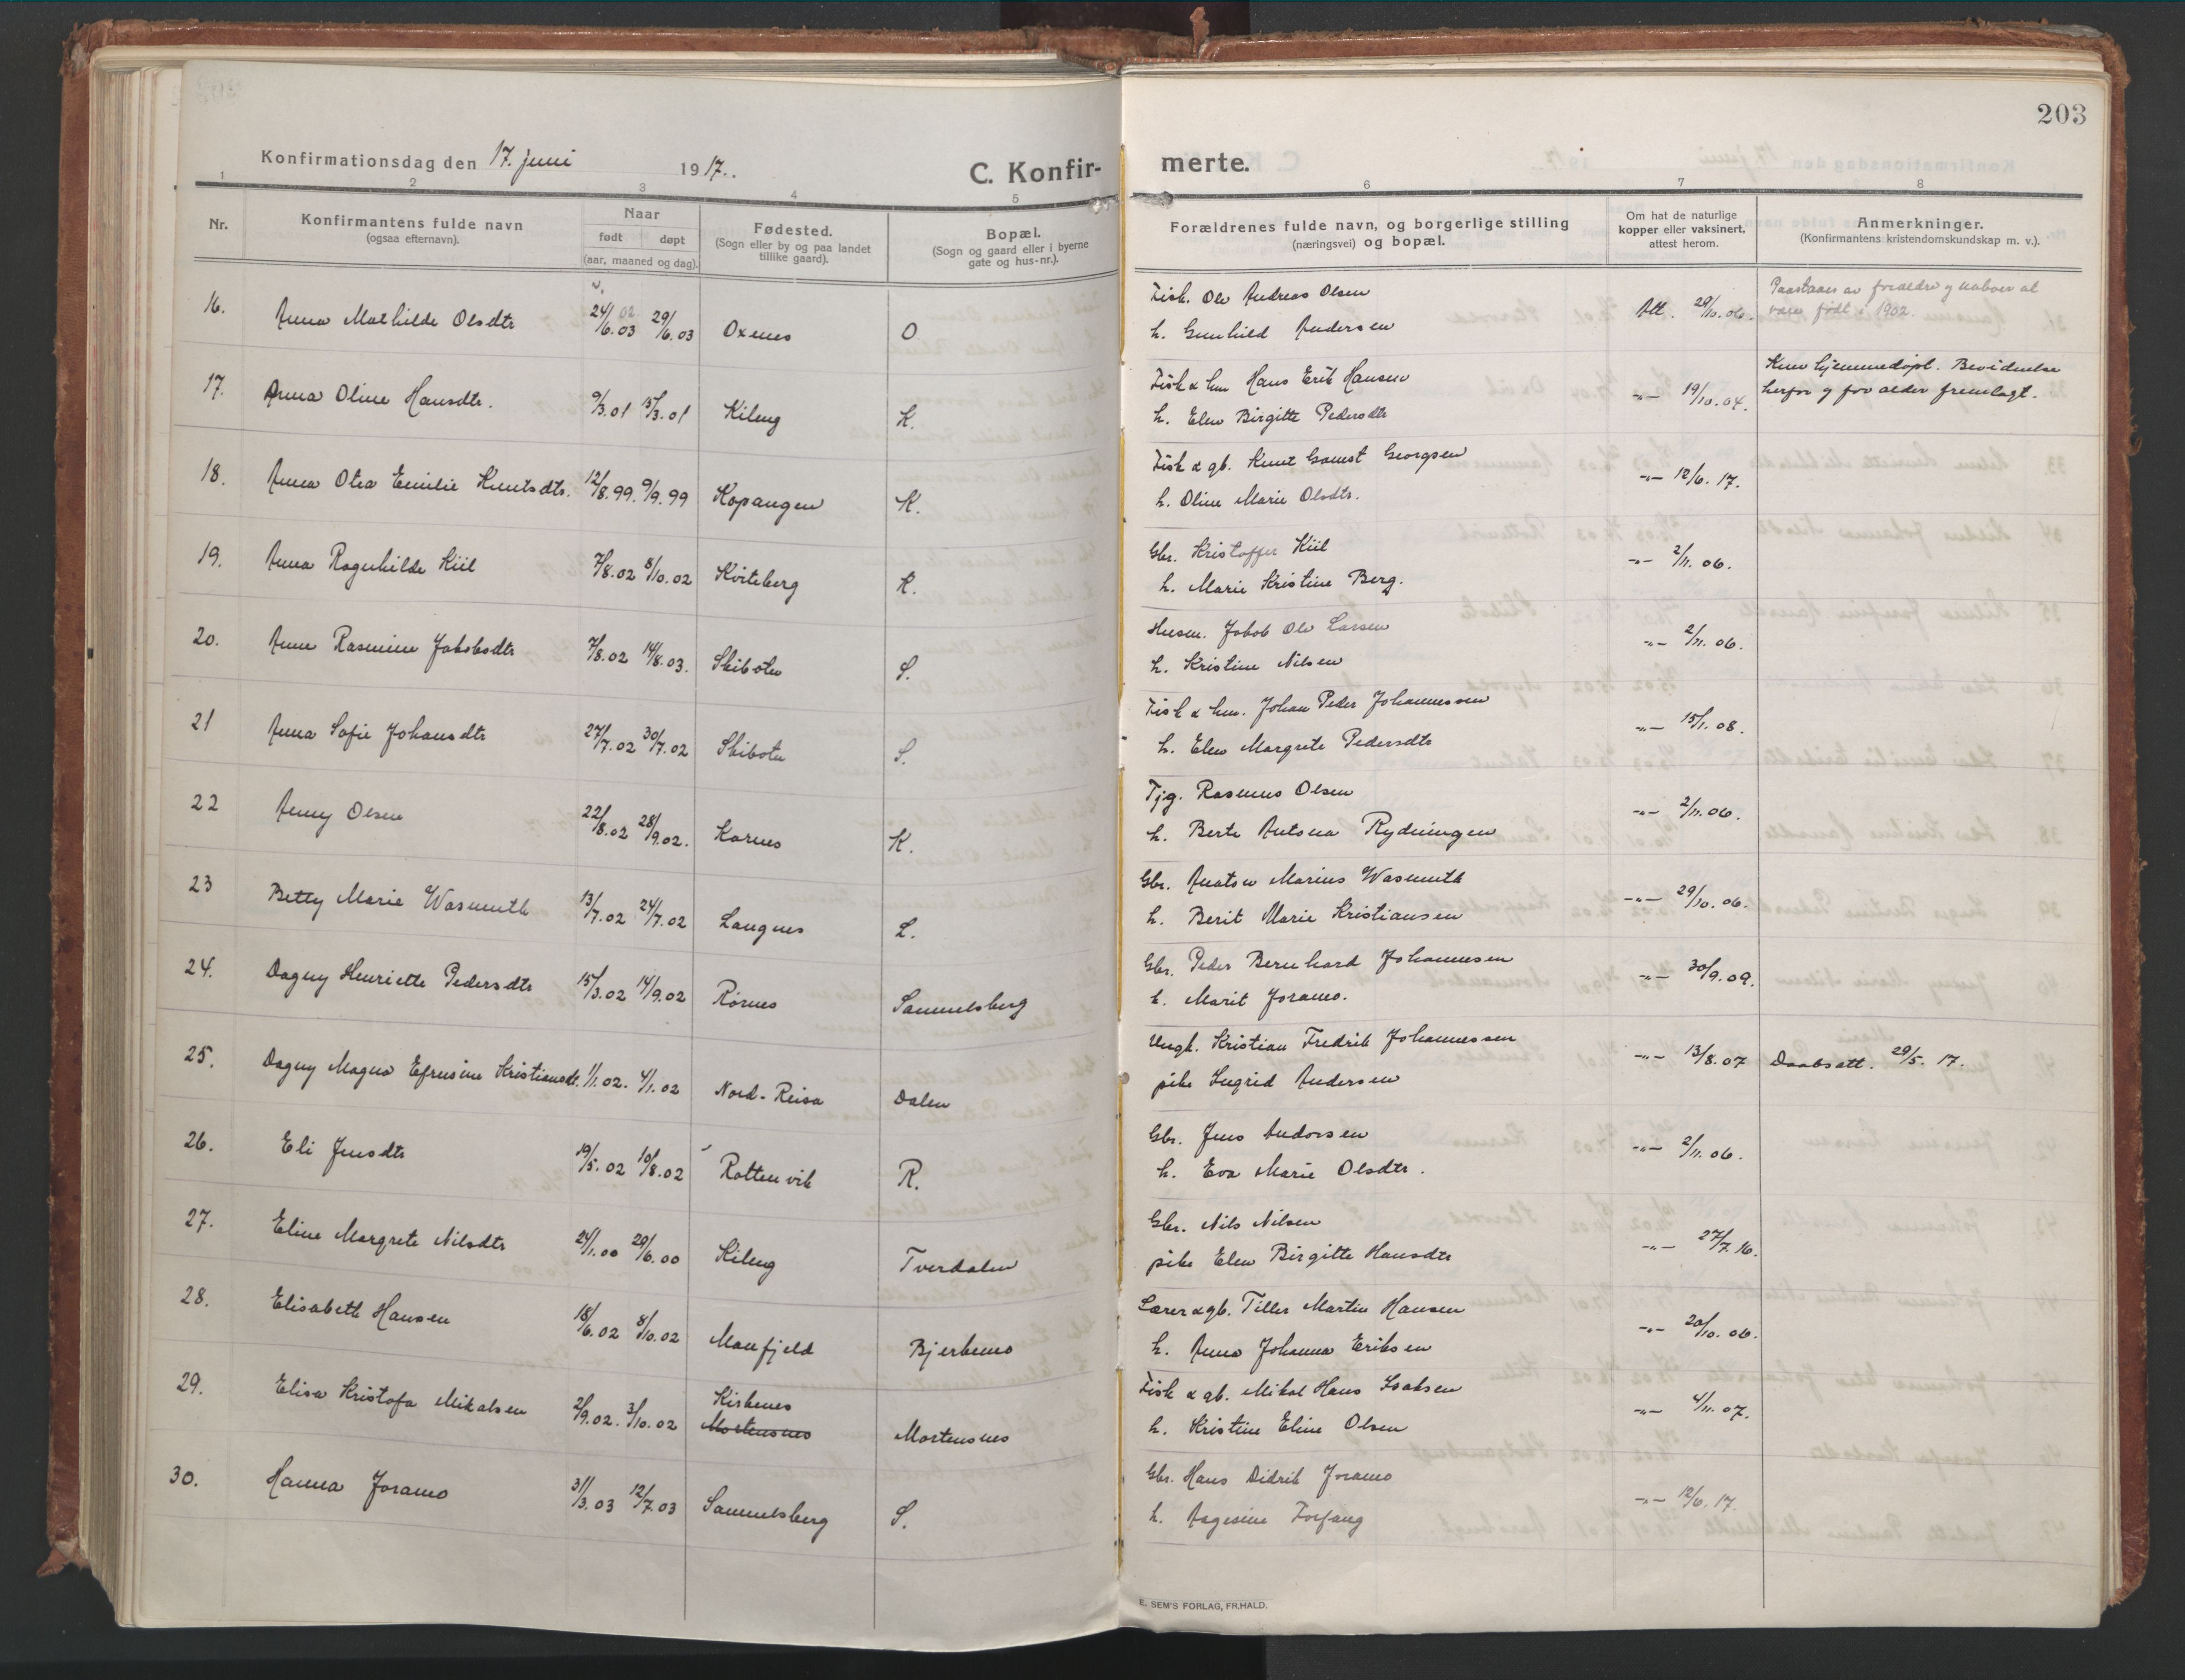 203
Konfirmationsdag den 17. juni 1917.
C. Konfir-
merte.
1 2 3 4 5 6 7 8
Nr.
Konfirmantens fulde navn
(ogsaa efternavn).
Naar
født døpt
(aar, maaned og dag).
Fødested.
(Sogn eller by og paa landet
tillike gaard).
Bopæl.
(Sogn og gaard eller i byerne
gate og hus-nr.).
Forældrenes fulde navn, og borgerlige stilling
(næringsvei) og bopæl.
Om hat de naturlige
kopper eller vaksinert,
attest herom.
Anmerkninger.
(Konfirmantens kristendomskundskap m. v.).
16. Anna Mathilde Olsdtr 24/6.03 02 29/6.03 Oxenes O
Fisk. Ole Andreas Olsen
h. Gunhild Andersen
Att. 29/10.06.
Paastaaes av forældre g naboer at
være født i 1902.
17. Anna Oline Hansdtr. 9/3.01 15/3.01 Kileng K.
Fisk & hm Hans Erik Hansen
h. Elen Birgitte Pedersdtr
-"- 19/10.04.
Kun hjemmedøpt. Bevidnelse
herfor g for alder fremlagt.
18. Anna Otea Emilie Knutsdtr. 12/8.99. 9/9.99 Kopangen K.
Fisk & gb. Knut Gamst Georgsen
h. Oline Marie Olsdtr.
-"- 12/6.17.
19. Anna Ragnhilde Kiil 7/8.02 5/10.02 Kviteberg K.
Gbr. Kristoffer Kiil
h. Marie Kristine Berg.
-"- 2/11.06.
20. Anna Rasmine Jakobsdtr 7/8.02 14/8.03. Skiboten S.
Husm. Jakob Ole Larsen
h. Kristine Nilsen
-"- 2/11.06.
21 Anna Sofie Johansdtr 27/7.02 30/7.02 Skiboten S.
Fisk & hm. Johan Peder Johannessen
h. Elen Margrete Pedersdtr
-"- 15/1.08.
22 Anny Olsen 22/8.02 28/9.02. Karnes K.
Tjg. Rasmus Olsen
h. Berte Antona Rydningen
-"- 2/11.06.
23 Betty Marie Wasmuth 13/7.02 24/7.02 Langnes L.
Gbr. Anton Marius Wasmuth
h. Berit Marie Kristiansen
-"- 29/10.06.
24. Dagny Henriette Pedersdtr 15/3.02 14/9.02 Rørnes Samuelsberg
Gbr. Peder Bernhard Johannesen
h. Marit Joramo.
-"- 30/9.09.
25. Dagny Magna Efrusine Kristiansdt. 1/1.02. 4/1.02 Nord-Reisa Dalen
Ungk. Kristian Fredrik Johannessen
pike Ingrid Andersen
-"- 13/8.07 Daabsatt. 29/5.17.
26. Eli Jensdtr 19/5.02 10/8.02 Rottenvik R.
Gbr. Jens Andersen
h. Eva Marie Olsdtr.
-"- 2/11.06.
27. Eline Margrete Nilsdtr 24/1.00 29/6.00 Kileng Tverdalen
Gbr. Nils Nilsen
pike Elen Birgitte Hansdtr
-"- 27/7.16.
28. Elisabeth Hansen 18/6.02 8/10.02 Manfjeld Bjerkemo
Lærer & gb. Tiller Martin Hansen
h. Anna Johanna Eriksen
-"- 20/10.06.
29. Elisa Kristofa Mikalsen 2/9.02. 3/10.02 Kirkenes
Mortensnes Mortensnes
Fisk & gb. Mikal Hans Isaksen
h. Kristine Eline Olsen
-"- 4/11.07.
30. Hanna Joramo 31/3.03 12/7.03 Samuelsberg S.
Gbr. Hans Didrik Joramo
h. Aagesine Forfang
-"- 12/6.17.
E. SEM'S FORLAG, FR.HALD.